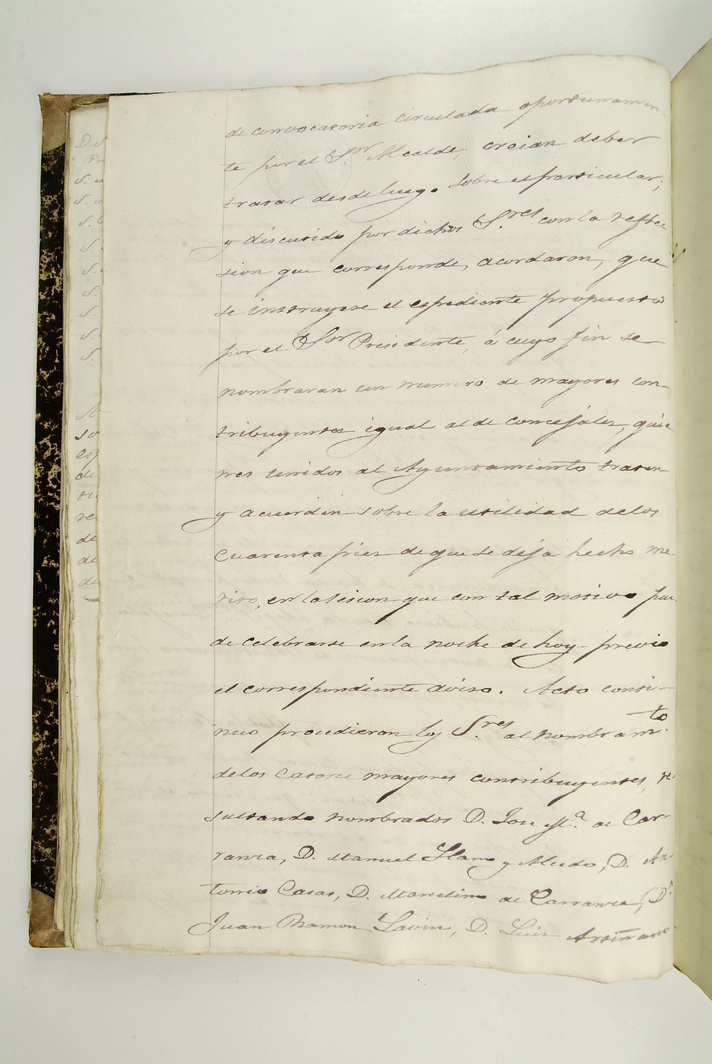 de convocatoria circulada oportunamen-
te por el Sor. Alcalde, creian deber
tratar desde luego sobre el particular;
y discutido por dichos S.res con la refle
sion que corresponde, acordaron, que
se instruyese el espediente propuesto
por el Sor Presidente, á cuyo fin se
nombraran un numero de mayores con-
tribuyentes igual al de concejales, quie
nes unidos al Ayuntamiento traten
y acuerden sobre la utilidad de los
cuarenta pies de que se deja hecho me-
rito, en la sesion que con tal motivo pue
de celebrarse en la noche de hoy previo
el correspondiente aviso. Acto conti-
nuo procedieron los S.res al nombram.to
de los catorce mayores contribuyentes, re
sultando nombrados D. Jose M.a de Car-
ranza, D. Manuel Llano y Aledo, D. An-
tonio Casas, D. Marcelino de Carranza, D.n
Juan Ramon Lavin, D. Luis Artiñano